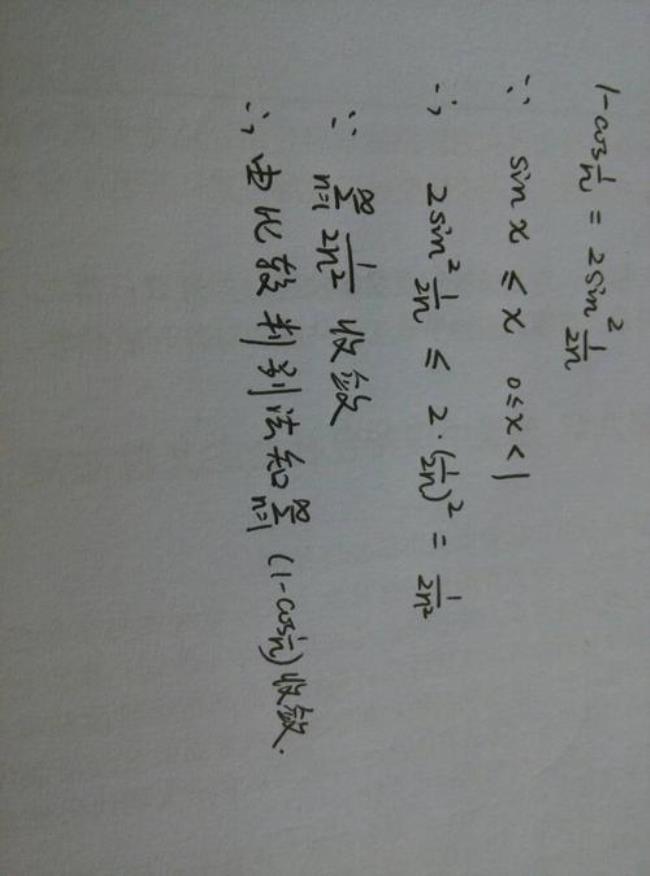 1-cos 1/n = 2sin² 1/2n
∵ sin x ≤ x 0≤x<1
∴ 2sin² 1/2n ≤ 2·(1/2n)² = 1/2n²
∵ ∞∑n=1 1/2n² 收敛
∴ 由比较判别法知 ∞∑n=1 (1-cos 1/n) 收敛.